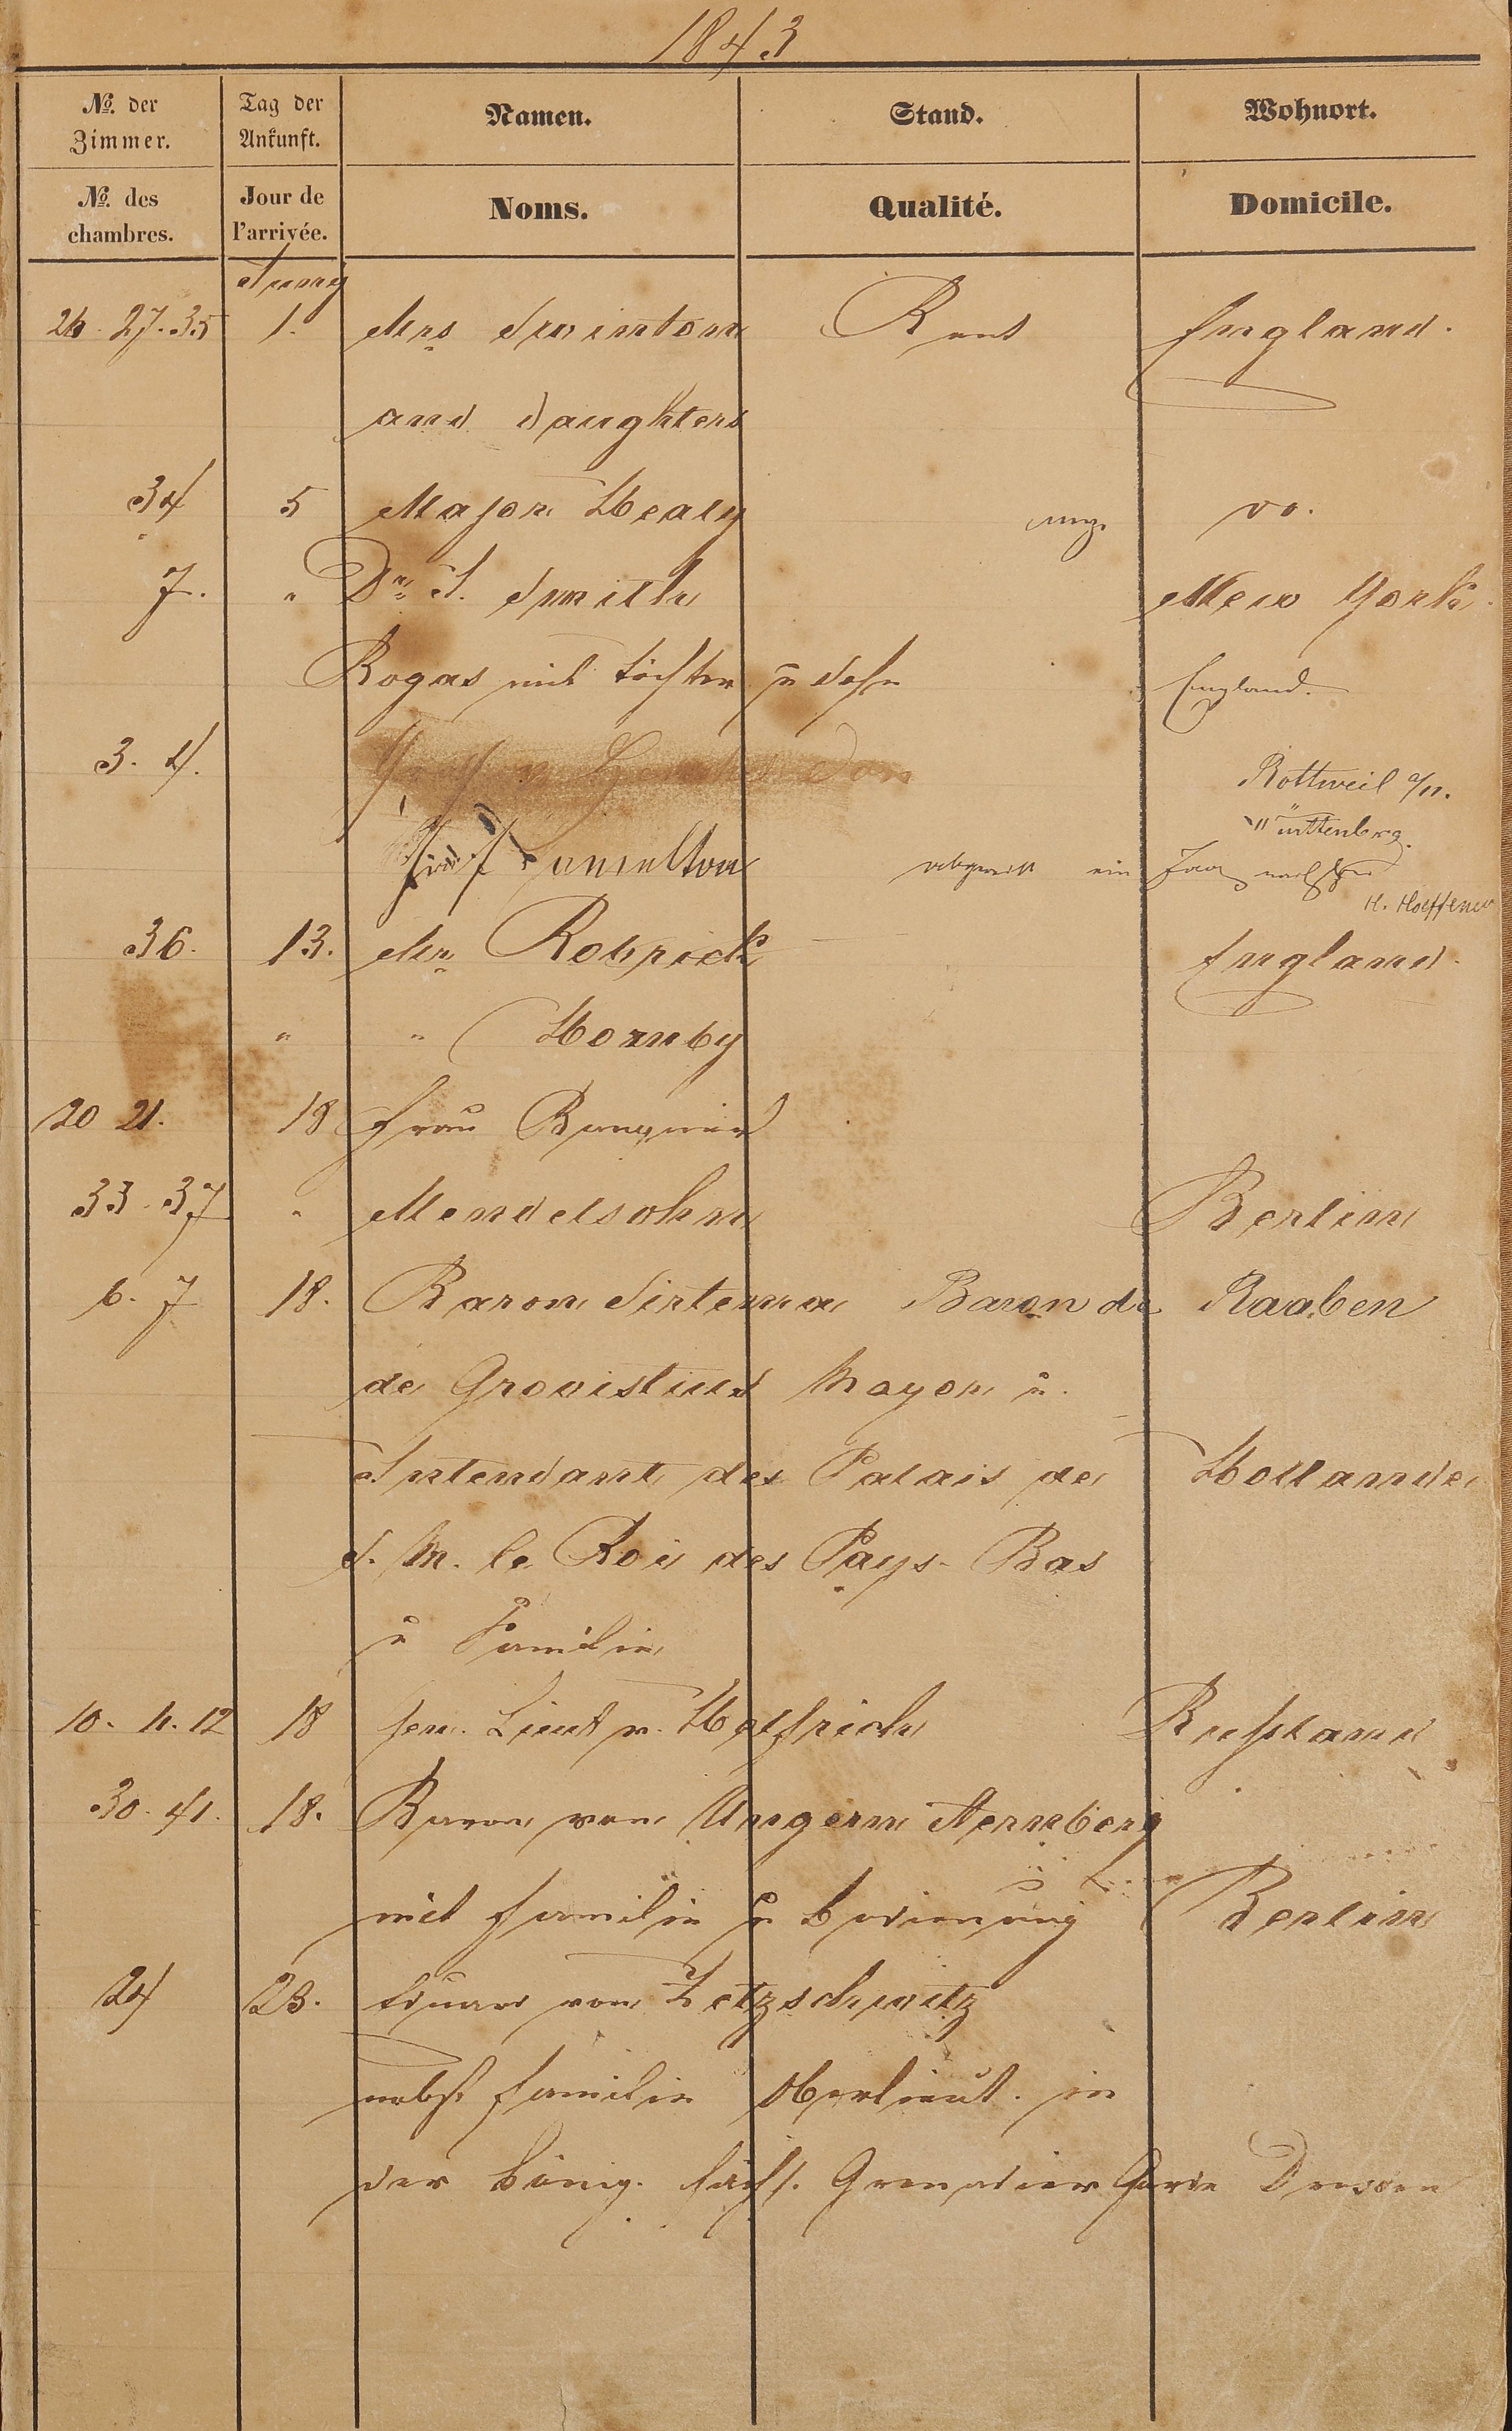 1843
No. der Zimmer. Tag der Ankunft. Namen. Stand. Wohnort.
No. des chambres. Jour de l'arrivée. Noms. Qualité. Domicile.
Juny
26. 27. 35 1. Mrs Swinton Rent England.
and daughters
34 5 Major Healy do.
7. " Dr. J. Smith New York.
Rogas mit Töchter u Sohn England.
3. 4.
Rottweil a/N.
Württenberg.
Graf
H. Hoffener
36. 13. Mr. Robrick England.
" " Hornby
20 21. 18 Frau
33. 37 " Mendelsohn Berlin
6. 7 18. Baron Sirtema Baron de Raaben
de Grovistins Mayor u.
Intendant des Palais de Hollande
S. M. le Roi des Pays-Bas
u Familie
10. 11. 12 18 Gen. Lieut v. Helfrich Rußland
30. 41. 18. Baron von Ungern Sternberg
mit Familie u Bedienung Berlin
24 23. Eduard von Zetzschwitz
nebst Familie Oberlieut. in
der König. Sächs. Grenadier Garde Dresden